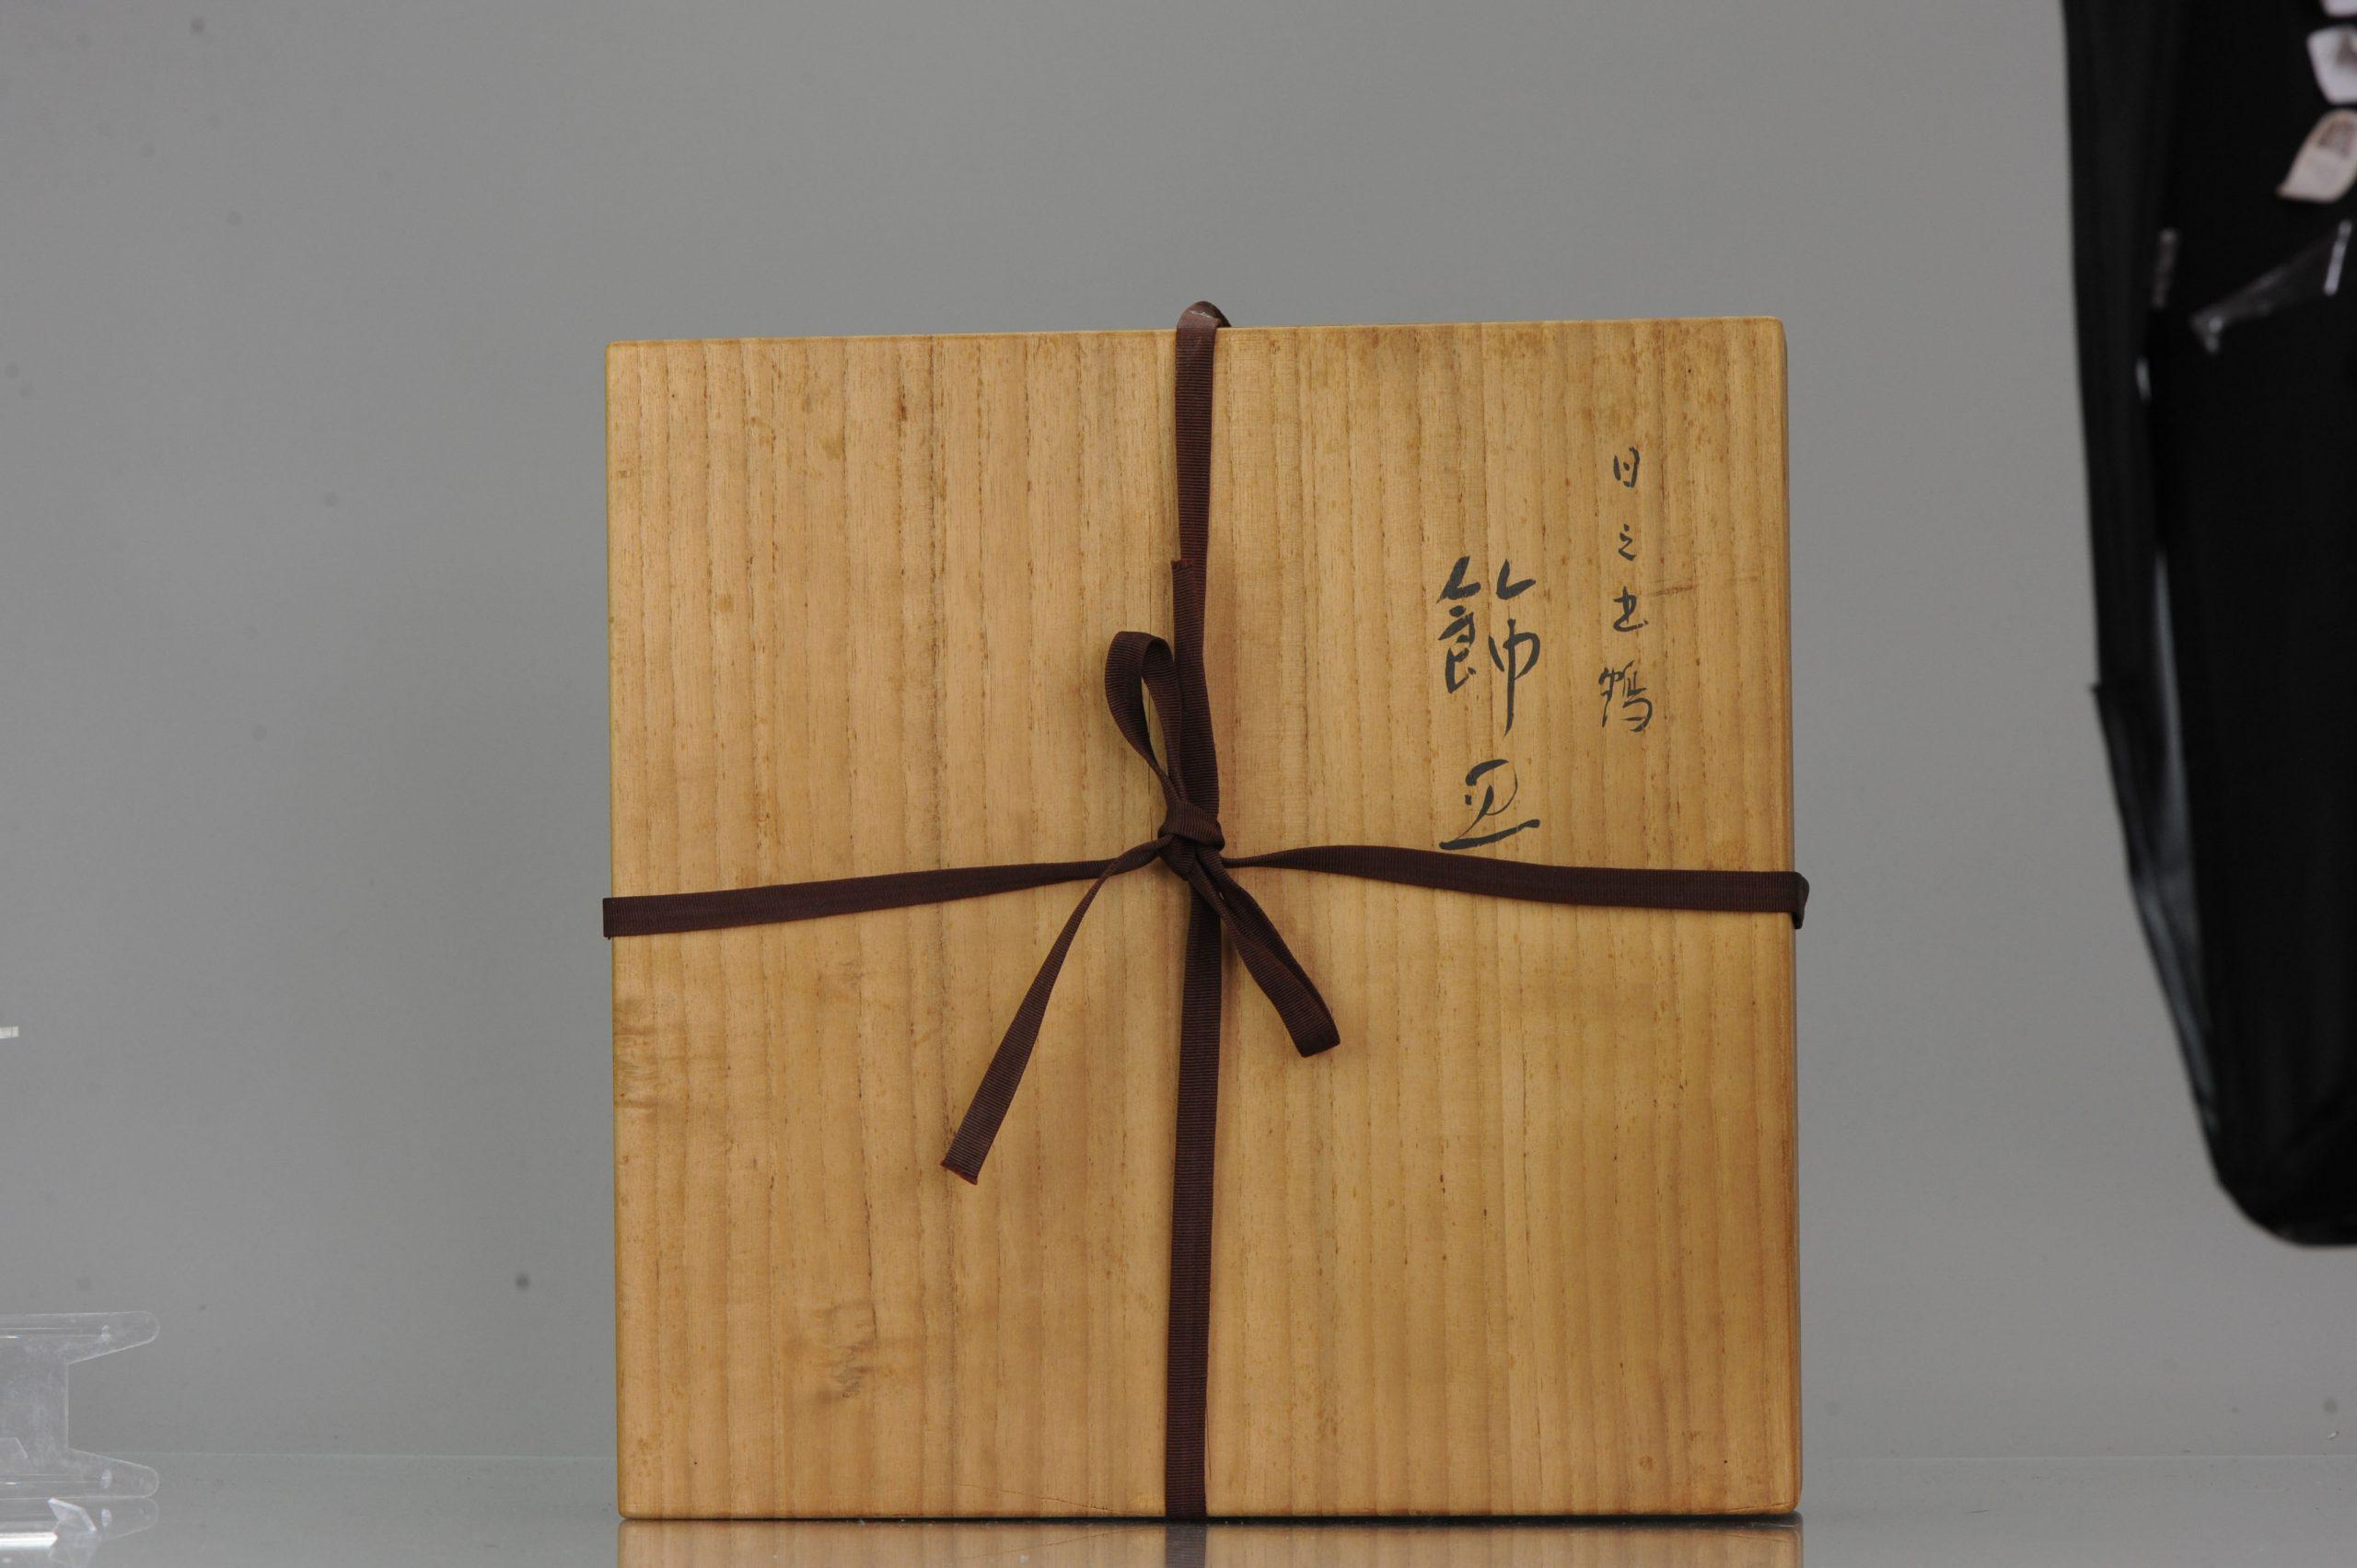 日之出鶴
飾皿